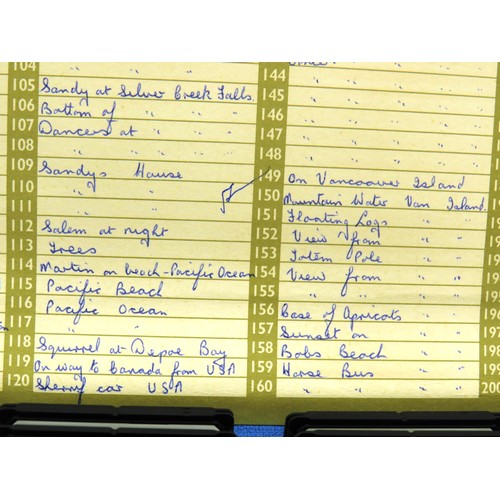 104 " "
105 Sandy at Silver Creek Falls.
106 Bottom of " " "
107 Dancers at " " "
108 " " " "
109 Sandys House
110 " "
111 " "
112 Salem at night
113 Trees
114 Martin on beach - Pacific Ocean
115 Pacific Beach
116 Pacific Ocean
117 " "
118 Squirrel at Depoe Bay
119 On way to Canada from USA
120 Sherry car USA
144 " " "
145 " " "
146 " " "
147 " " "
148 " " "
149 On Vancoaver Island
150 Mountain Water Van Island.
151 Floating Logs " "
152 View from " "
153 Totem Pole " "
154 View from " "
155 " " " "
156 Case of Apricots " "
157 Sunset on " "
158 Bobs Beach " "
159 Horse Bus " "
160 " " " "
199
200